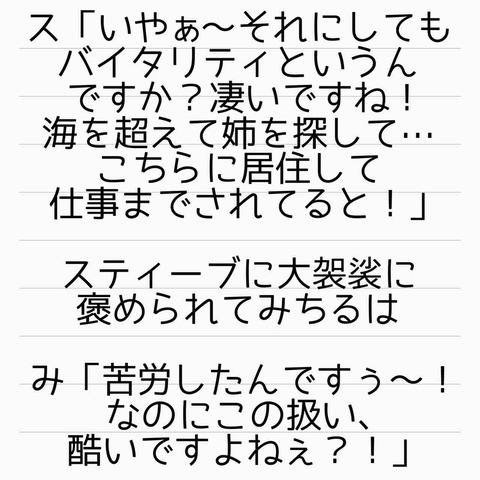 ス「いやぁ〜それにしても
バイタリティというん
ですか？凄いですね！
海を超えて姉を探して…
こちらに居住して
仕事までされてると！」
スティーブに大袈裟に
褒められてみちるは
み「苦労したんですぅ〜！
なのにこの扱い、
酷いですよねぇ？！」